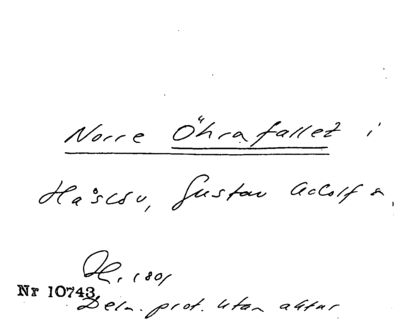 Norre Öhrafallet i
Håslöv, Gustav Adolf s.
H. 1801
Nr 10743
Beln. prot. utan aktur